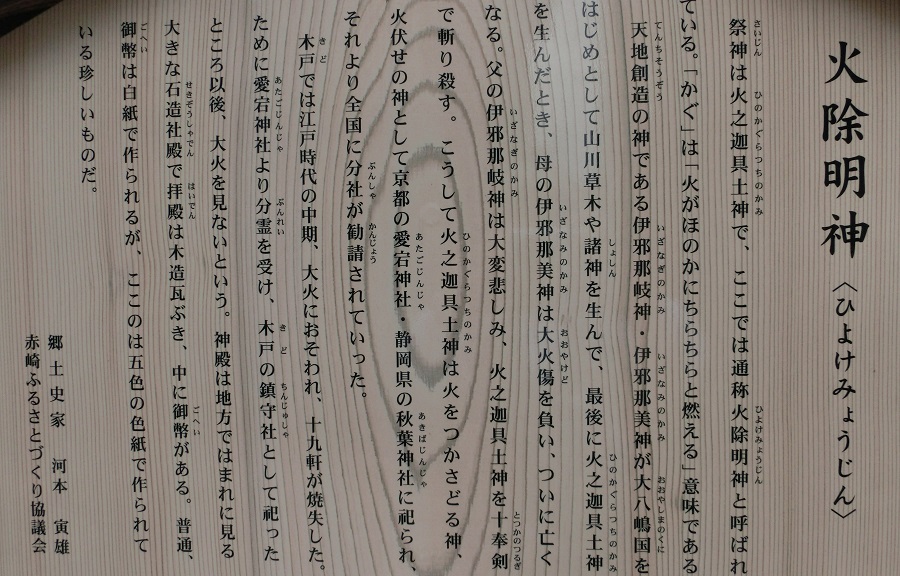 火除明神〈ひよけみょうじん〉
祭神は火之迦具土神で、ここでは通称火除明神と呼ばれ
ている。「かぐ」は「火がほのかにちらちらと燃える」意味である
天地創造の神である伊邪那岐神・伊邪那美神が大八嶋国を
はじめとして山川草木や諸神を生んで、最後に火之迦具土神
を生んだとき、母の伊邪那美神は大火傷を負い、ついに亡く
なる。父の伊邪那岐神は大変悲しみ、火之迦具土神を十奉剣
で斬り殺す。こうして火之迦具土神は火をつかさどる神、
火伏せの神として京都の愛宕神社・静岡県の秋葉神社に祀られ、
それより全国に分社が勧請されていった。
木戸では江戸時代の中期、大火におそわれ、十九軒が焼失した。
ために愛宕神社より分霊を受け、木戸の鎮守社として祀った
ところ以後、大火を見ないという。神殿は地方ではまれに見る
大きな石造社殿で拝殿は木造瓦ぶき、中に御幣がある。普通、
御幣は白紙で作られるが、ここのは五色の色紙で作られて
いる珍しいものだ。
郷土史家 河本 寅雄
赤崎ふるさとづくり協議会